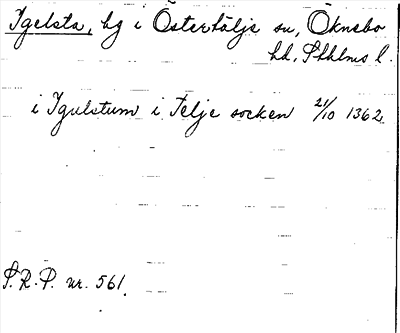 Igelsta, hg i Östertälje sn, Öknebo
hd, Sthlms l.
i Igulstum i Telje socken 21/10 1362.
S.R.P. nr. 561.